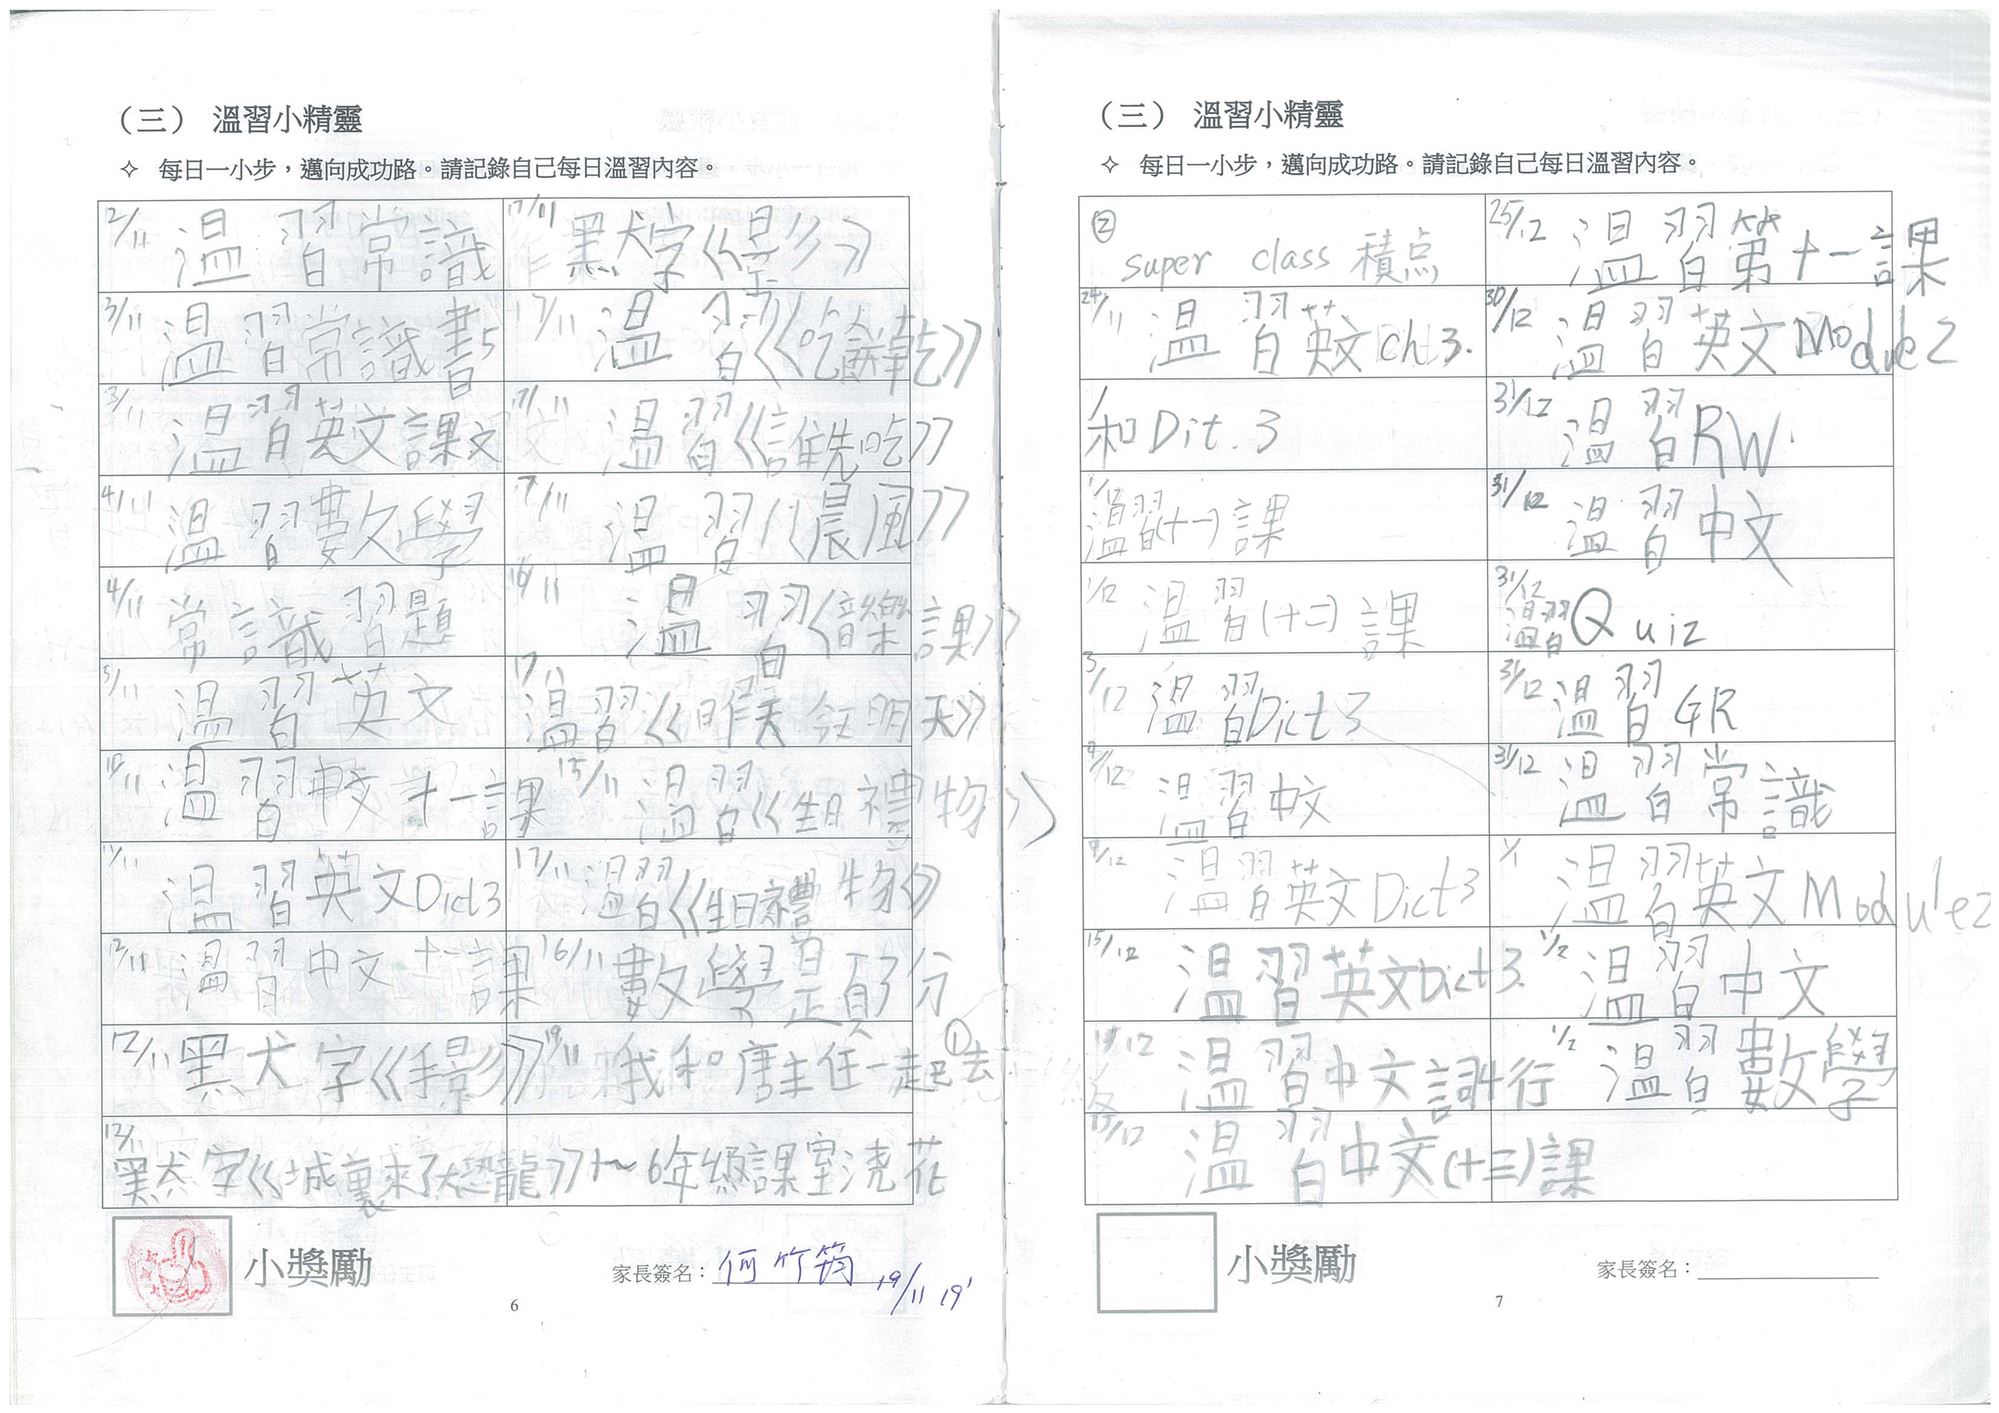 （三） 溫習小精靈
✧ 每日一小步，邁向成功路。請記錄自己每日溫習內容。
2/11 溫習常識
3/11 溫習常識書5
3/11 溫習英文課文
4/11 溫習數學
4/11 常識習題
5/11 溫習英文
10/11 溫習中文十一課
11/11 溫習英文Dict3
12/11 溫習中文十一課
12/11 黑犬字《手影》
12/11 黑犬字《城裏來了大恐龍》
17/11 作黑犬字《影》
17/11 溫習《吃餅乾》
17/11 溫習《誰先吃》
17/11 溫習《晨風》
16/11 溫習《音樂課》
17/11 溫習《昨天今天明天》
15/11 溫習《生日禮物》
17/11 溫習《生日禮物》
16/11 數學是頁分
19/11 我和唐主任一起去①
1~6年級課室澆花
小獎勵
家長簽名：何竹筠 19/11 19'
6
（三） 溫習小精靈
✧ 每日一小步，邁向成功路。請記錄自己每日溫習內容。
② super class 積点
24/11 溫習英文ch3.
和Dit.3
1/12 溫習(十一)課
1/12 溫習(十二)課
3/12 溫習Dict3
9/12 溫習中文
9/12 溫習英文Dict3
15/12 溫習英文Dict3.
15/12 溫習中文詞4行
15/12 溫習中文(十三)課
25/12 溫習第十一課
30/12 溫習英文Module2
31/12 溫習RW
31/12 溫習中文
31/12 溫習Quiz
31/12 溫習GR
31/12 溫習常識
1/1 溫習英文Module2
1/2 溫習中文
1/2 溫習數學
小獎勵
家長簽名：
7